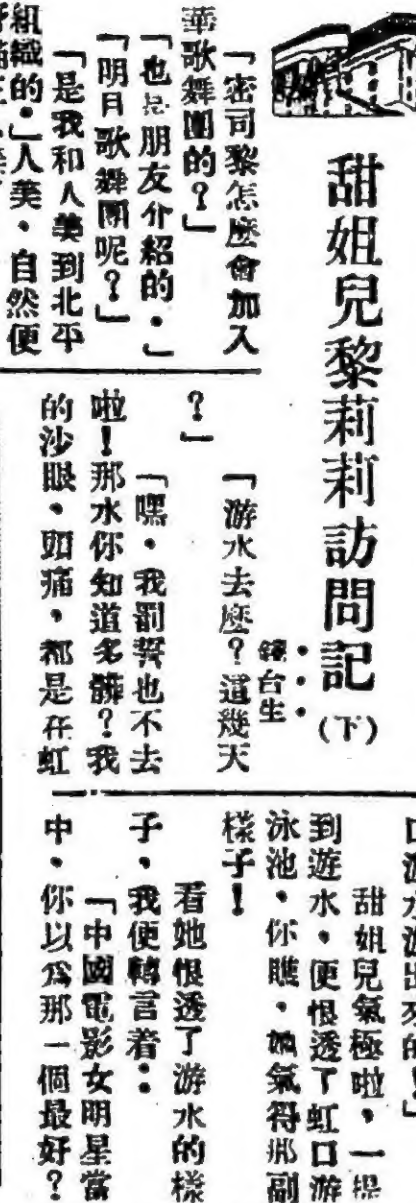 甜姐兒黎莉莉訪問記(下)
鏡台生
「密司黎怎麽會加入
華歌舞團的?」
「也是朋友介紹的。」
「明月歌舞團呢?」
「是我和人美到北平
組織的。」人美。自然便
「游水去麽?這幾天
?」
「嘿。我罰誓也不去
啦!那水你知道多髒?我
的沙眼。頭痛。都是在虹
口游水游出來的!」
甜姐兒氣極啦。一提
到遊水。便恨透了虹口游
泳池。你瞧。她氣得那副
樣子!
看她恨透了游水的樣
子。我便轉言着:
「中國電影女明星當
中。你以爲那一個最好?